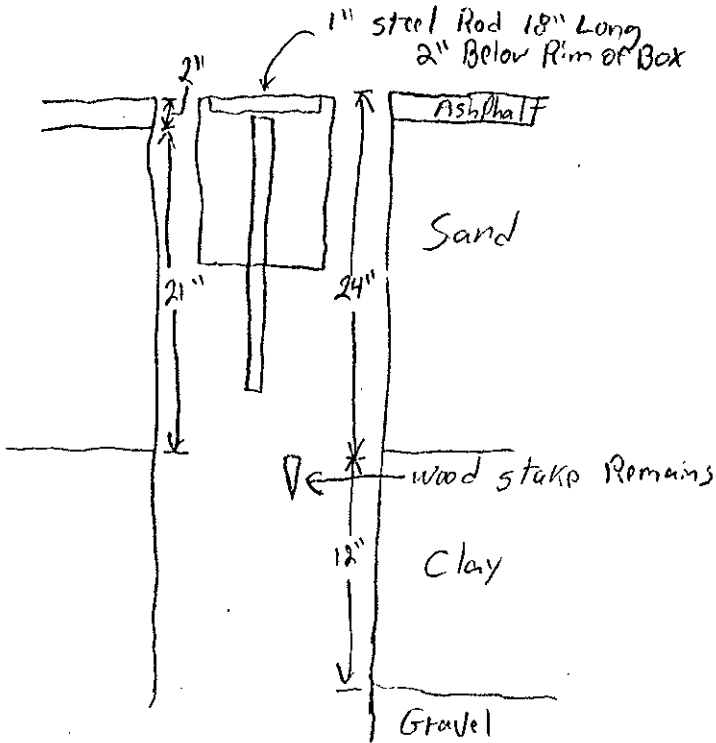 1" steel Rod 18" Long
2" Below Rim of Box
2"
Ashphalt
Sand
21"
24"
wood stake Remains
12"
Clay
Gravel